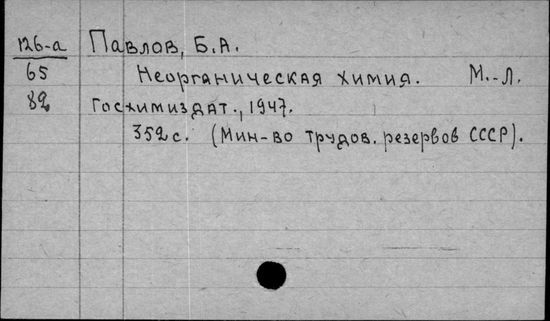 126-а Павлов, Б.А.
65 Неорганическая химия. М.-Л.
82 Госхимиздат., 1947.
352 с. (Мин-во трудов. резервов СССР).